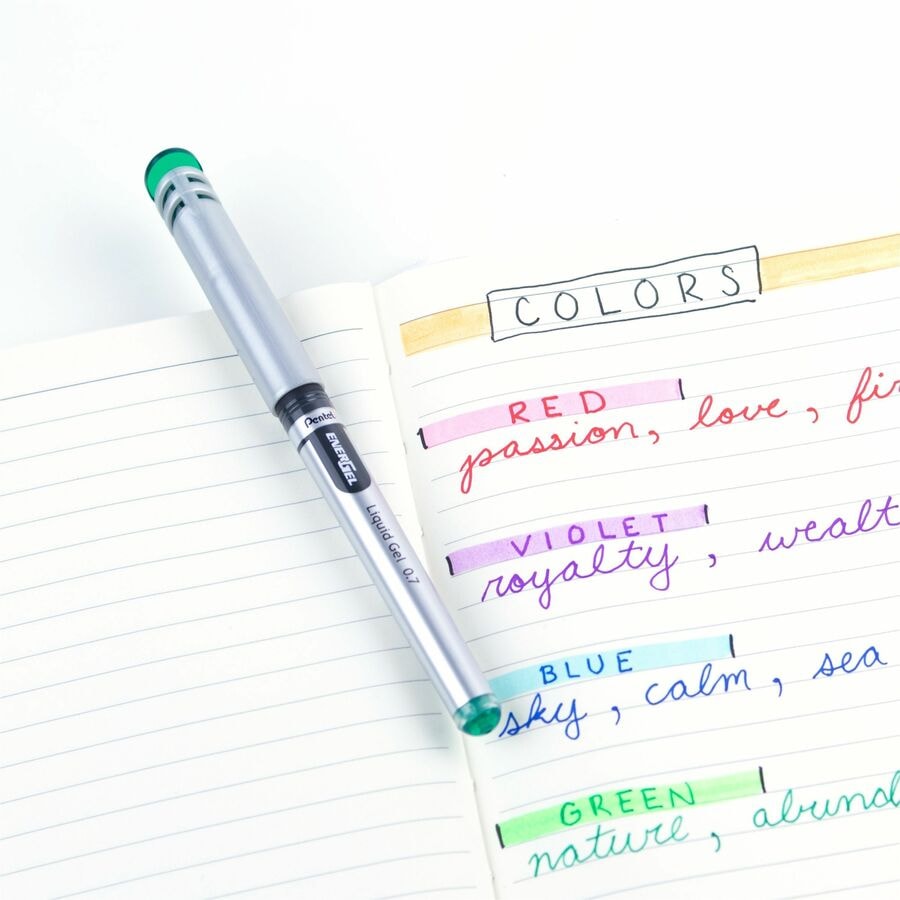 COLORS
RED
passion, love, fi
VIOLET
royalty, wealt
BLUE
sky, calm, sea
GREEN
nature, abund
Pentel
ENERGEL
Liquid Gel 0.7